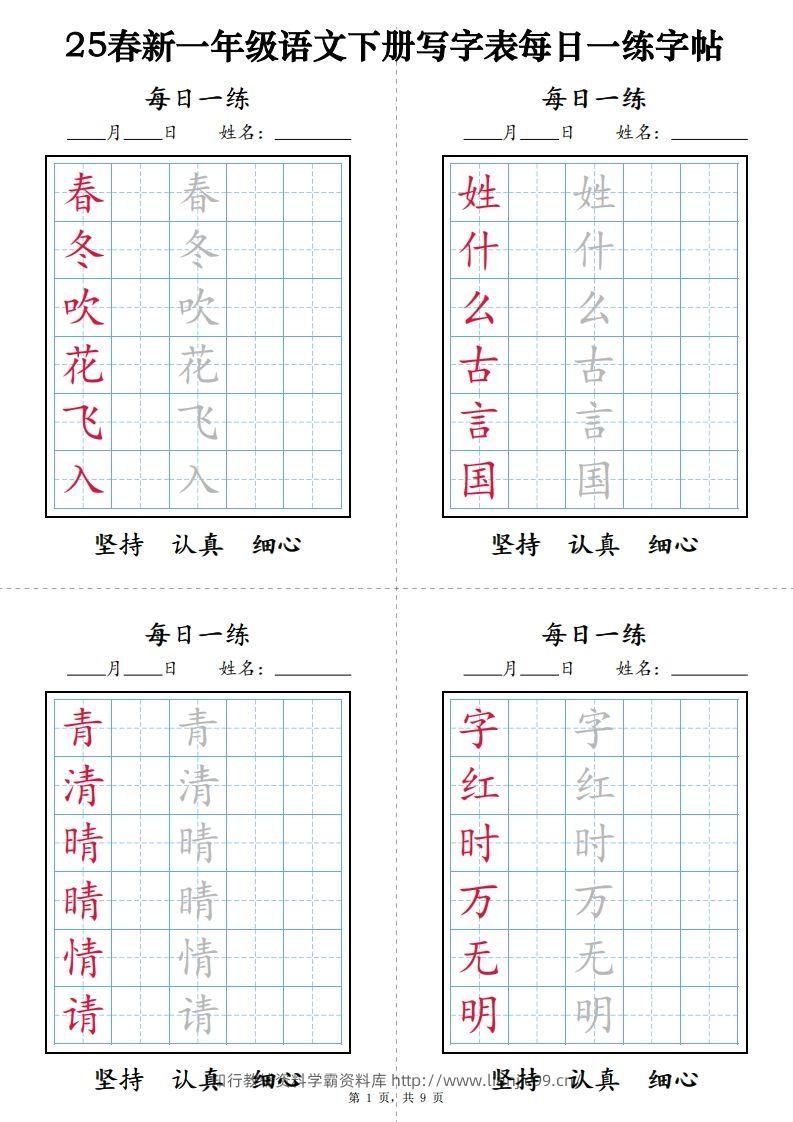 25春新一年级语文下册写字表每日一练字帖
每日一练
____月____日 姓名：________
春 春
冬 冬
吹 吹
花 花
飞 飞
入 入
坚持 认真 细心
每日一练
____月____日 姓名：________
姓 姓
什 什
么 么
古 古
言 言
国 国
坚持 认真 细心
每日一练
____月____日 姓名：________
青 青
清 清
晴 晴
睛 睛
情 情
请 请
坚持 认真 细心
每日一练
____月____日 姓名：________
字 字
红 红
时 时
万 万
无 无
明 明
坚持 认真 细心
资料学霸资料库
第 1 页，共 9 页